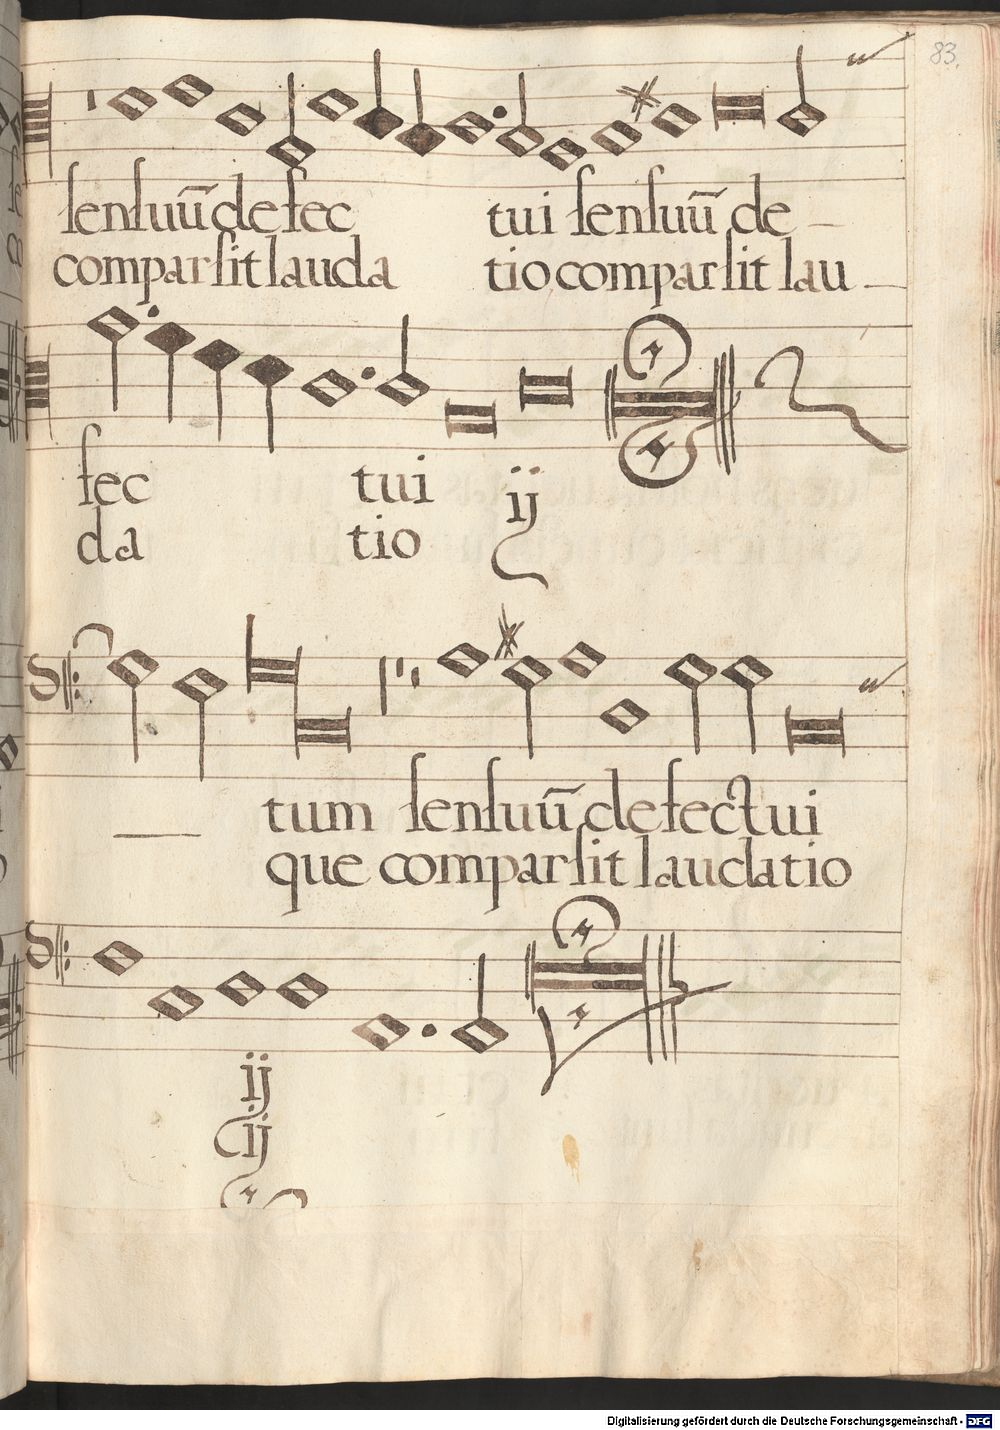 83.
ſenſuū defec tui ſenſuū de
comparſit lauda tio comparſit lau
fec tui ij
da tio
tum ſenſuū defectui
que comparſit laudatio
ij
ij
Digitalisierung gefördert durch die Deutsche Forschungsgemeinschaft - DFG